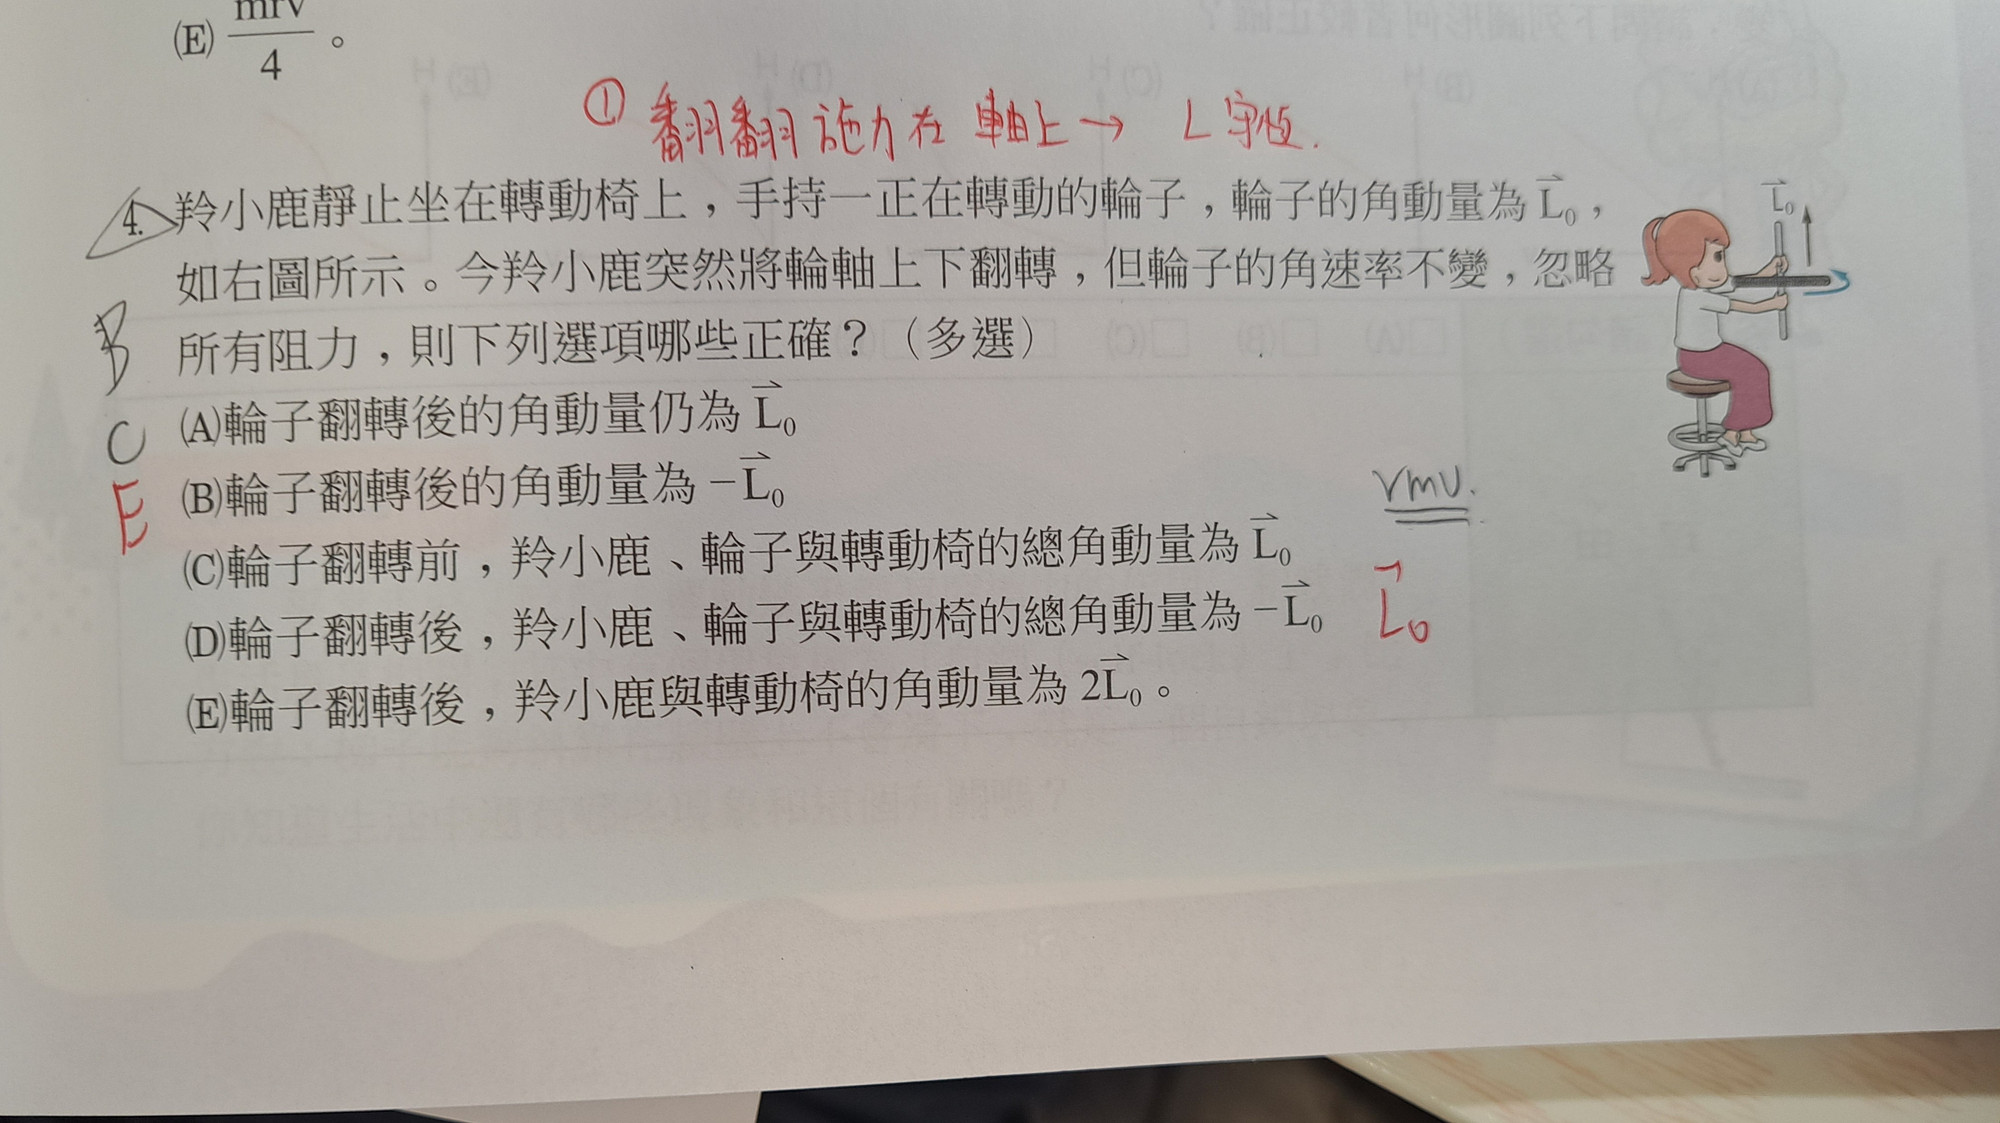 mrv
(E) — 。
4
① 翻翻施力在軸上→ L守恆.
4. 羚小鹿靜止坐在轉動椅上，手持一正在轉動的輪子，輪子的角動量為 L⃗₀，
L⃗₀
如右圖所示。今羚小鹿突然將輪軸上下翻轉，但輪子的角速率不變，忽略
所有阻力，則下列選項哪些正確？（多選）
B
(A)輪子翻轉後的角動量仍為 L⃗₀
C
(B)輪子翻轉後的角動量為 −L⃗₀
rmv.
E
(C)輪子翻轉前，羚小鹿、輪子與轉動椅的總角動量為 L⃗₀
(D)輪子翻轉後，羚小鹿、輪子與轉動椅的總角動量為 −L⃗₀
L⃗₀
(E)輪子翻轉後，羚小鹿與轉動椅的角動量為 2L⃗₀。